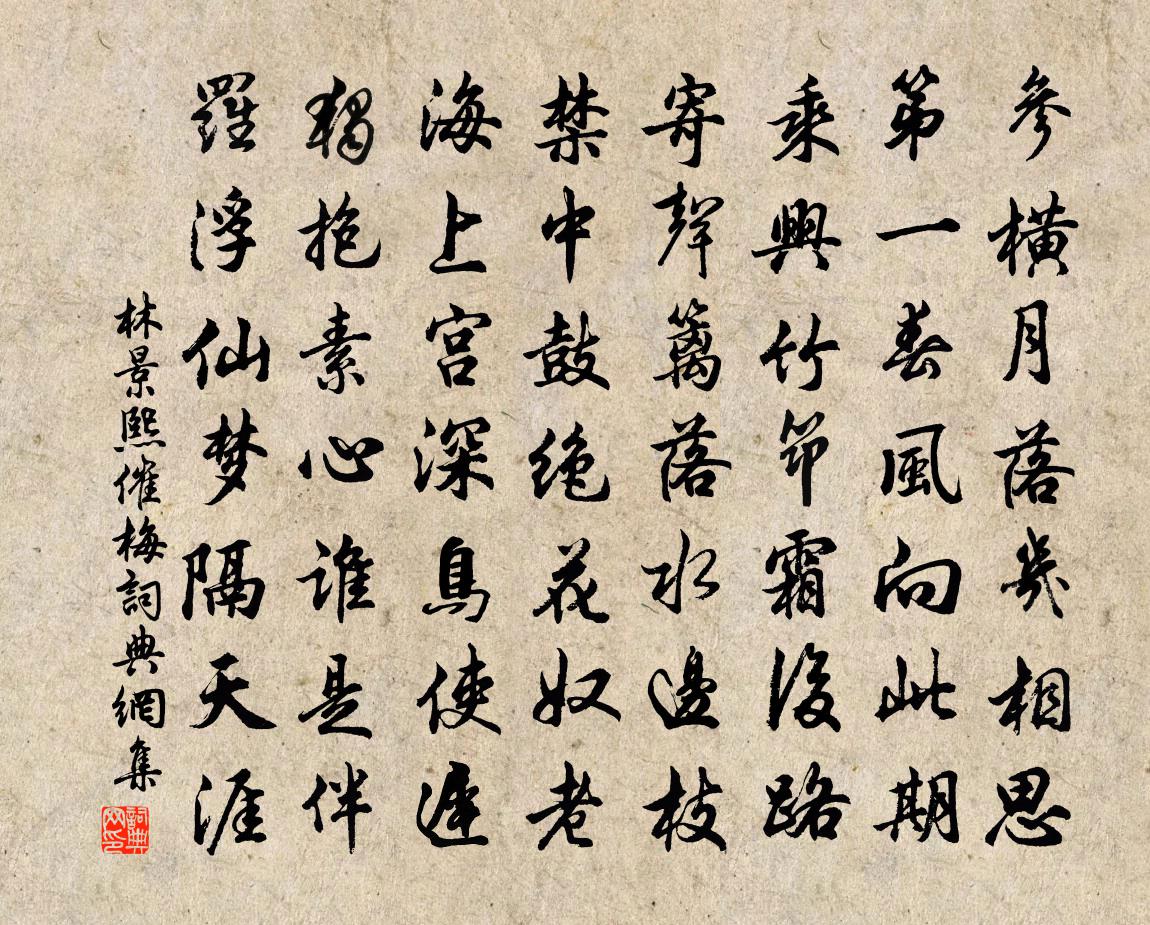 參橫月落幾相思
第一春風向此期
乘興竹笻霜後路
寄聲籬落水邊枝
禁中鼓絶花奴老
海上宮深鳥使遲
獨抱素心誰是伴
羅浮仙梦隔天涯
林景熙催梅詞典網集
詞典网印